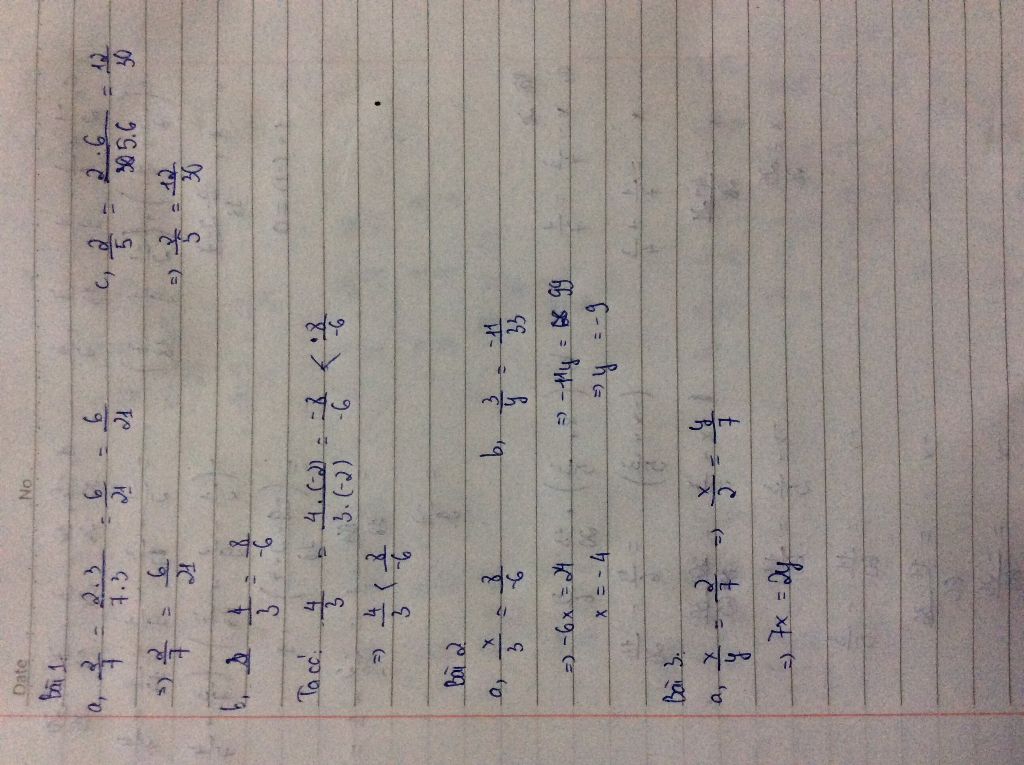 Date No
Bài 1:
a, 2/7 = 2.3/7.3 = 6/21 = 6/21
=> 2/7 = 6/21
c, 2/5 = 2.6/5.6 = 12/30
=> 2/5 = 12/30
b, 4/3 = 8/-6
Ta có: 4/3 = 4.(-2)/3.(-2) = -8/-6 < 8/-6
=> 4/3 < 8/-6
Bài 2
a, x/3 = 8/-6
=> -6x = 24
x = -4
b, 3/y = -11/33
=> -11y = 99
=> y = -9
Bài 3:
a, x/y = 2/7 => x/2 = y/7
=> 7x = 2y